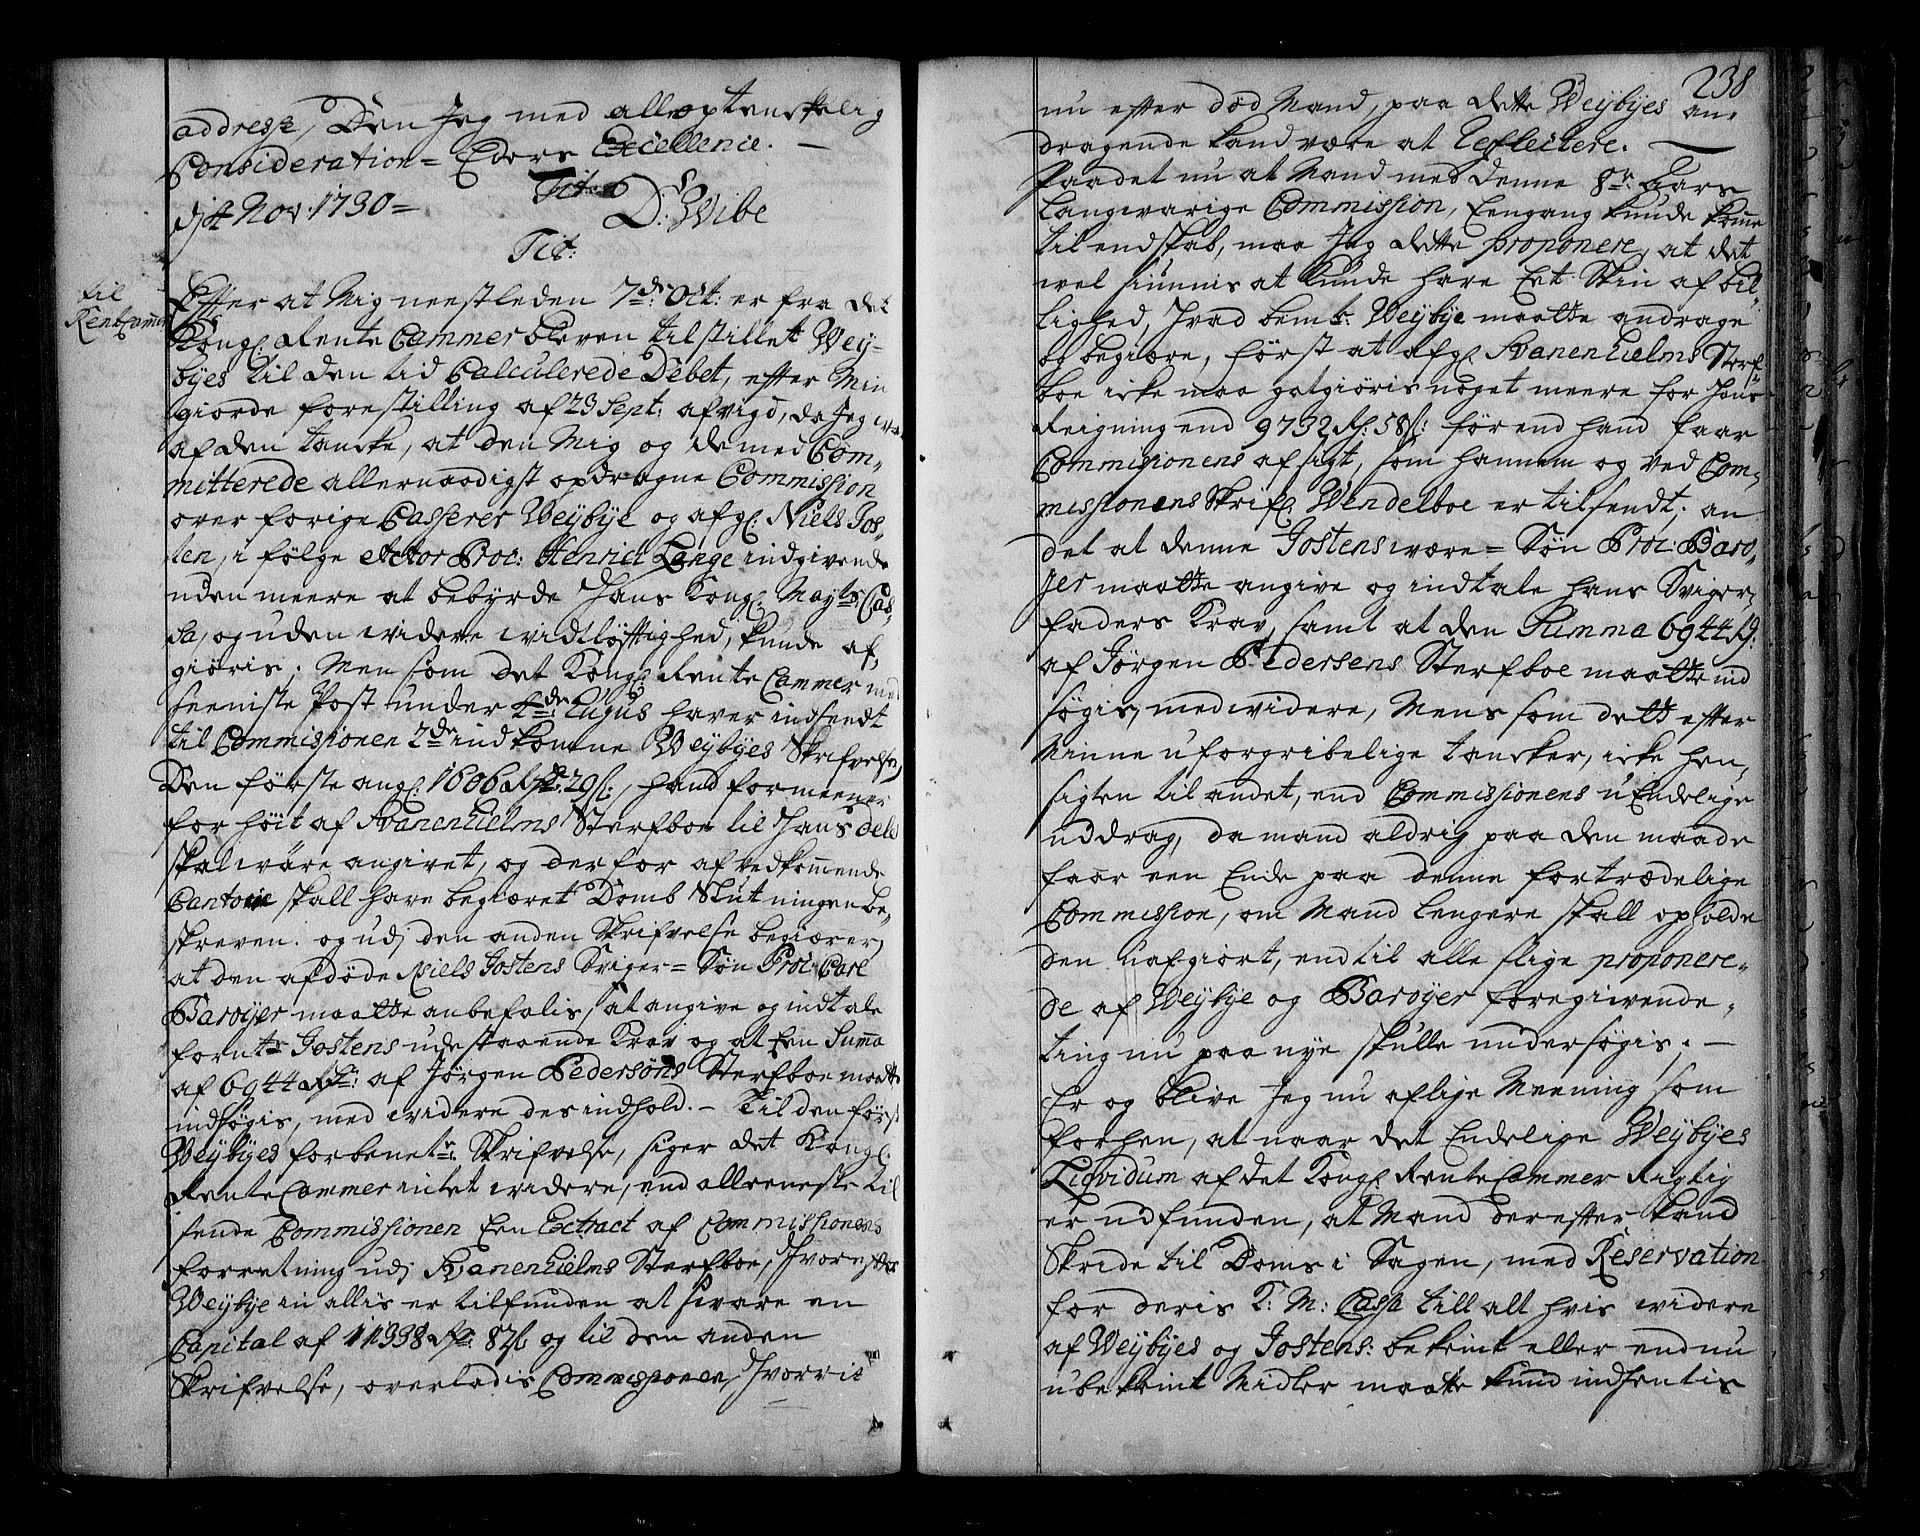 addresse, Den Jeg med all optenckelig
Consideration = Eders Excellence. —
Tit:
dj 4 Nov: 1730 =
D: Wibe
Tit:
til
Rentecammer
Efter at Mig neestleden 7de Oct: er fra det
Kongl: Rente Cammer bleven tilstillet Wey=
byes til den tid Calculerede Debet, efter Min
giorde forestilling af 23 Sept: afvigt, da Jeg war
af den tancke, at den Mig og de med Com„
mitterede allernaadigst opdragne Commission
over forige Casserer Weybye og afgl: Niels Jos„
ten, i følge Actor Proc: Henrich Lange indgivende
uden meere at bebyrde Hans Kongl: Mayts Cas„
sa, og uden widere widtløftighed, kunde af„
giøris. Men som det Kongl: Rente Cammer med
seeniste Post under 4de hujus haver indsendt
til Commissionen 2de indkomne Weybyes Skrifvelse,
Den første angl: 1606 Rdr: 29 s:, hand formeener
for høit af Svanenhielms Sterfboe til Hans dels
skal wære angivet, og derfor af vedkommende
Cantoir skall have begiæret Domb Slutningen be„
skreven. og udj den anden Skrifvelse begiærer,
at den afdøde Niels Jostens Sviger = Søn Proc: Carl
Baroyer maatte anbefalis at angive og indtale
fornte Jostens udestaaende Krav og at Een Summa
af 6944 Rdr: af Jørgen Pedersøns Sterfboe maatte
indsøgis, med widere des indhold. — Til den først
Weybyes forbente Skrifvelse, siger det Kongl:
Rente Cammer intet widere, end alleeneste til
sende Commissionen Een Extract af Commissionens
forretning udj Svanenhielms Sterfboe, Hvorefter
Weybye in allis er tilfunden at svare en
Capital af 11338 Rdr: 87 s: og til den anden
Skrifvelse, overladis Commissionen, Hvorvit
238
nu efter død Mand, paa dette Weybyes an„
dragende kand være at Reflectere. —
Paa det nu at Mand med denne 8te Aars
Langvarige Commission, Eengang kunde komme
til endskab, maa Jeg dette proponere, at det
wel siunnis at kunde have Eet Skin af bil„
lighed, Hvad bemte: Weybye maatte andrage
og begiære, først at afgl: Svanenhielms Sterf„
boe icke maa godgiøris noget meere for Hans
Reigning end 9732 Rd: 58 s: før end hand faar
Commissionens afsigt, som hannem og ved Com„
missionens Skrifr: Wendelboe er tilsendt; an
det at denne Jostens wære = Søn Proc: Baro„
yer maatte angive og indtale hans Sviger„
faders Krav, samt at den Summa 6944 Rd:
af Jørgen Pedersens Sterfboe maatte ind
søgis, med widere, Mens som dette efter
Minne uforgribelige tancker, icke hen„
sigten til andet, end Commissionens uEndelige
uddrag, da mand aldrig paa den maade
faar een Ende paa denne fortrædelige
Commission, om Mand lengere skall opholde
den uafgiort, end til alle slige proponere„
de af Weybye og Baroyer foregivende„
ting nu paa nye skulle undersøgis. —
Er og blive Jeg nu af lige Meening som
forhen, at naar det Endelige Weybyes
Liqvidum af det Kongl: Rente Cammer Rigtig
er udfunden, at Mand derefter kand
Skride til Doms i Sagen, med Reservation
for deris K: M: Cassa till alt hvis widere
af Weybyes og Jostens: bekeint eller endnu
ubekeint Midler maatte kund indhentis